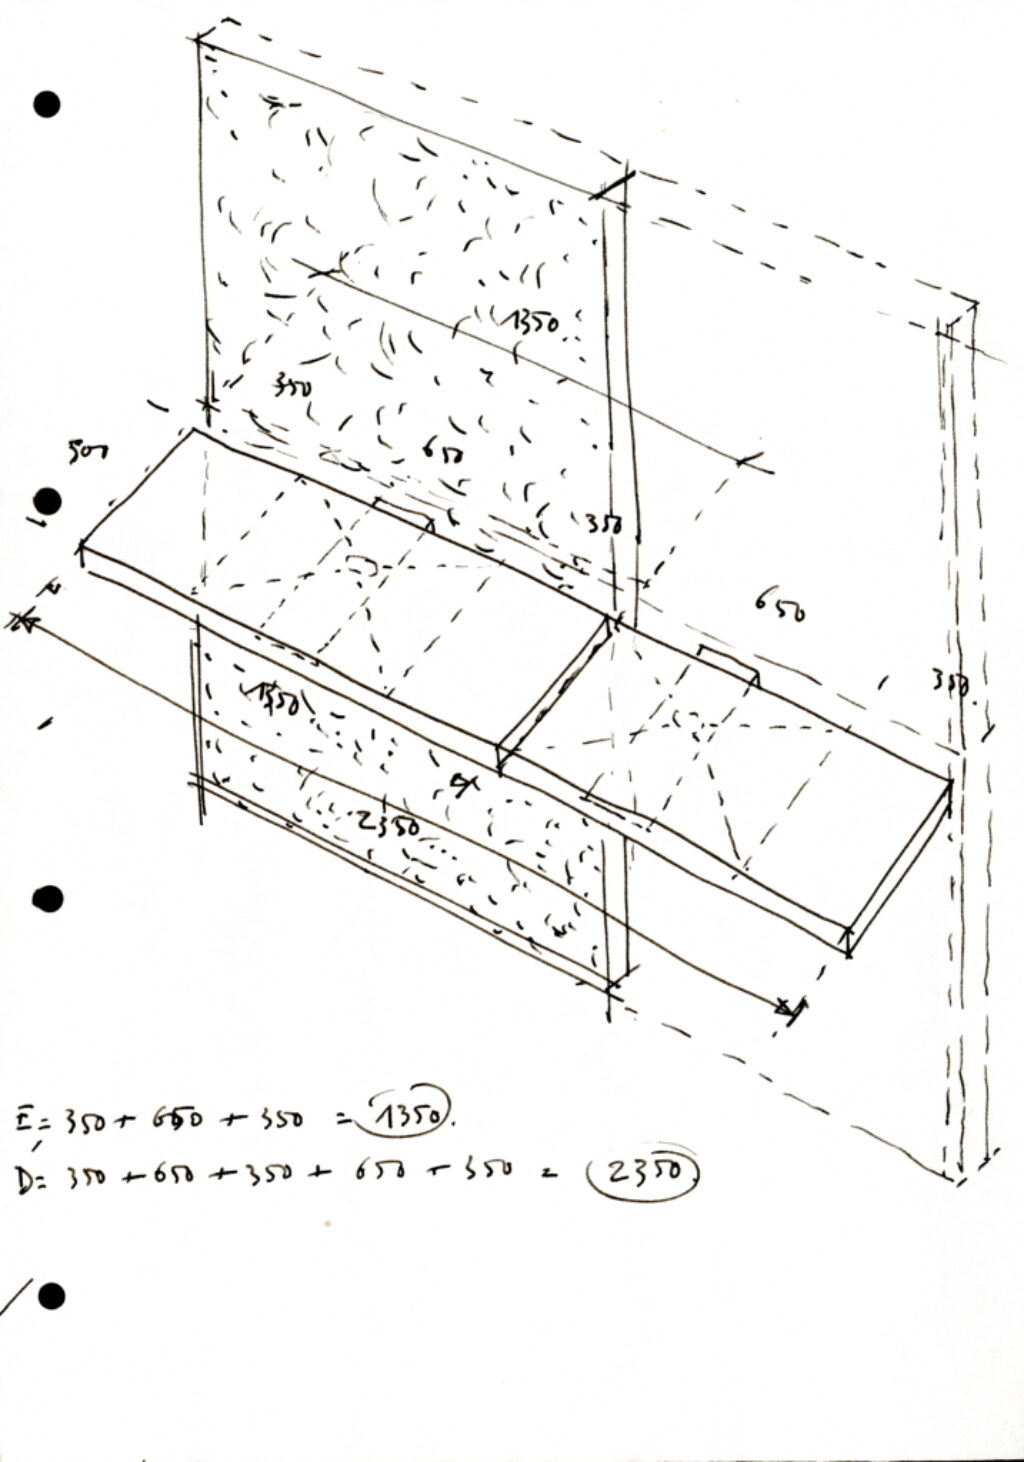 1350
350
650
500
350
650
350
1350
2350
E = 350 + 650 + 350 = 1350.
D = 350 + 650 + 350 + 650 + 350 = 2350.